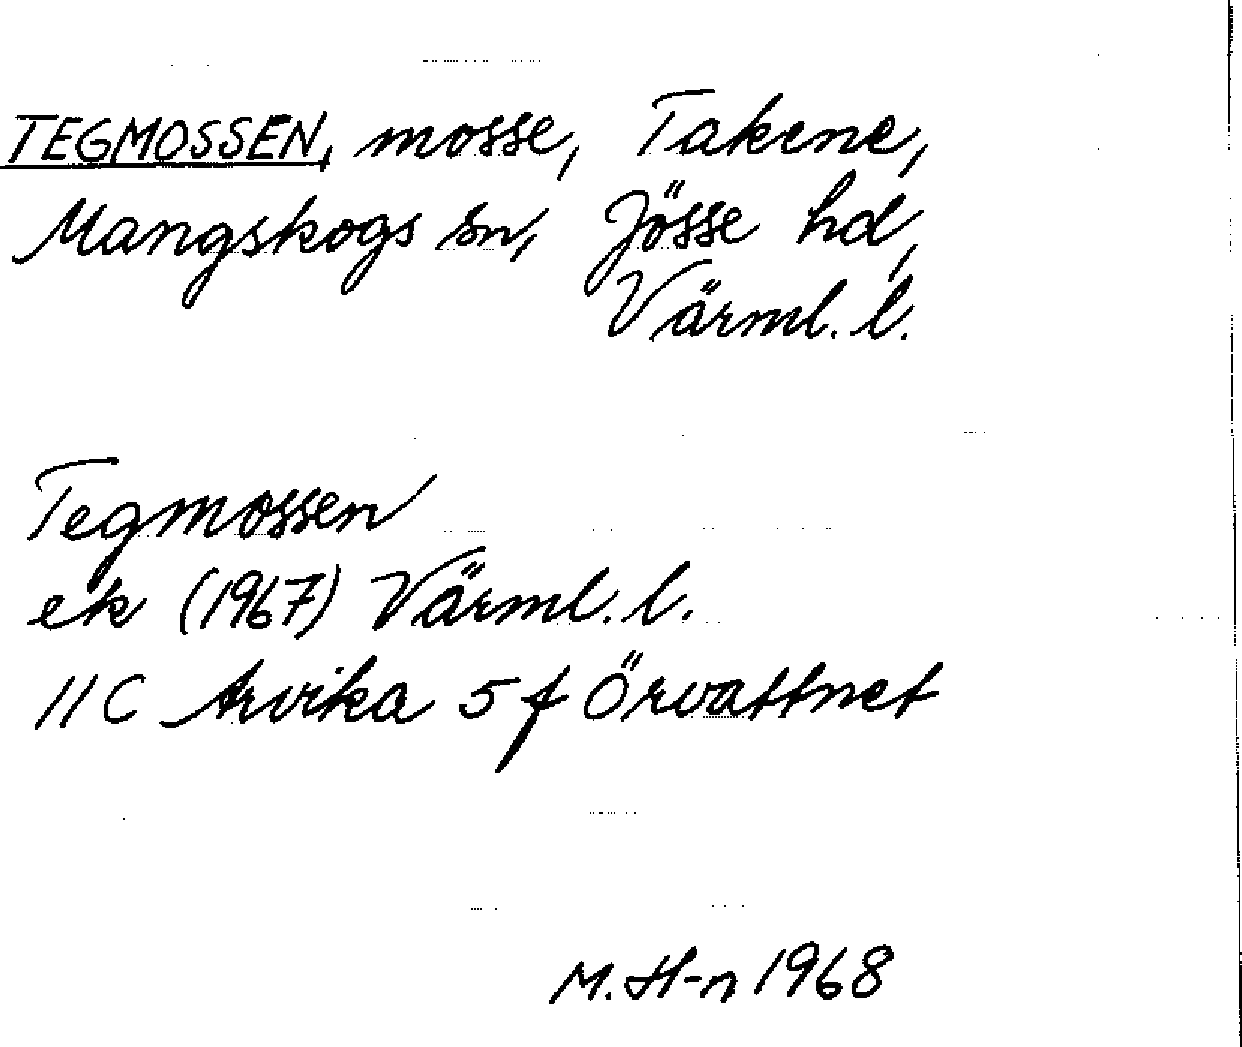 TEGMOSSEN, mosse, Takene,
Mangskogs sn, Jösse hd,
Värml. l.
Tegmossen
ek (1967) Värml. l.
11C Arvika 5 f Örvattnet
M. H-n 1968